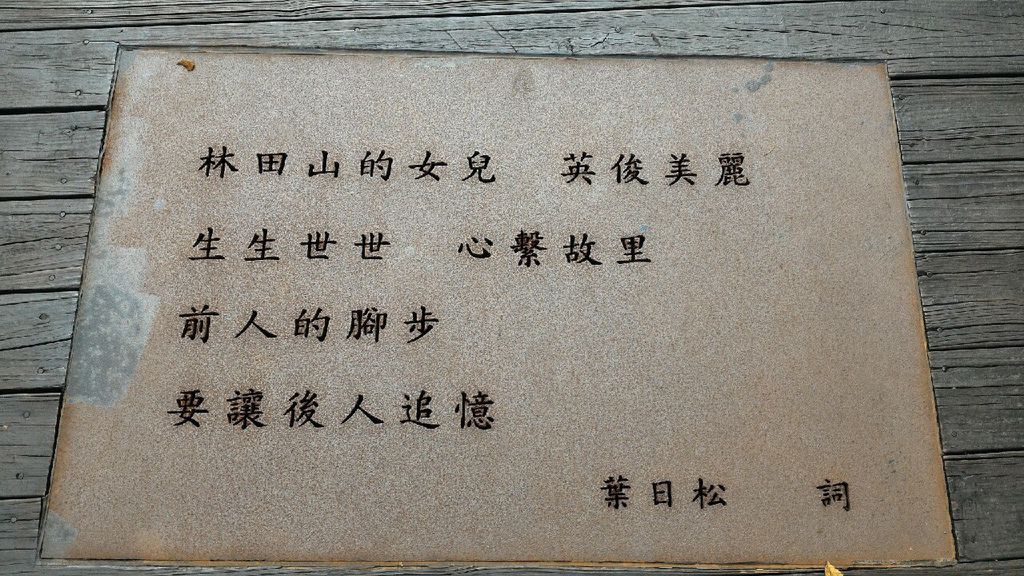 林田山的女兒　英俊美麗
生生世世　心繫故里
前人的腳步
要讓後人追憶
葉日松　詞